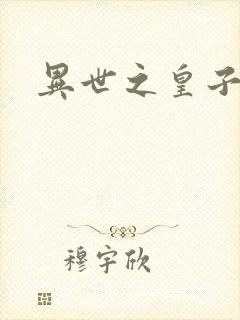 異世之皇子
穆宇欣